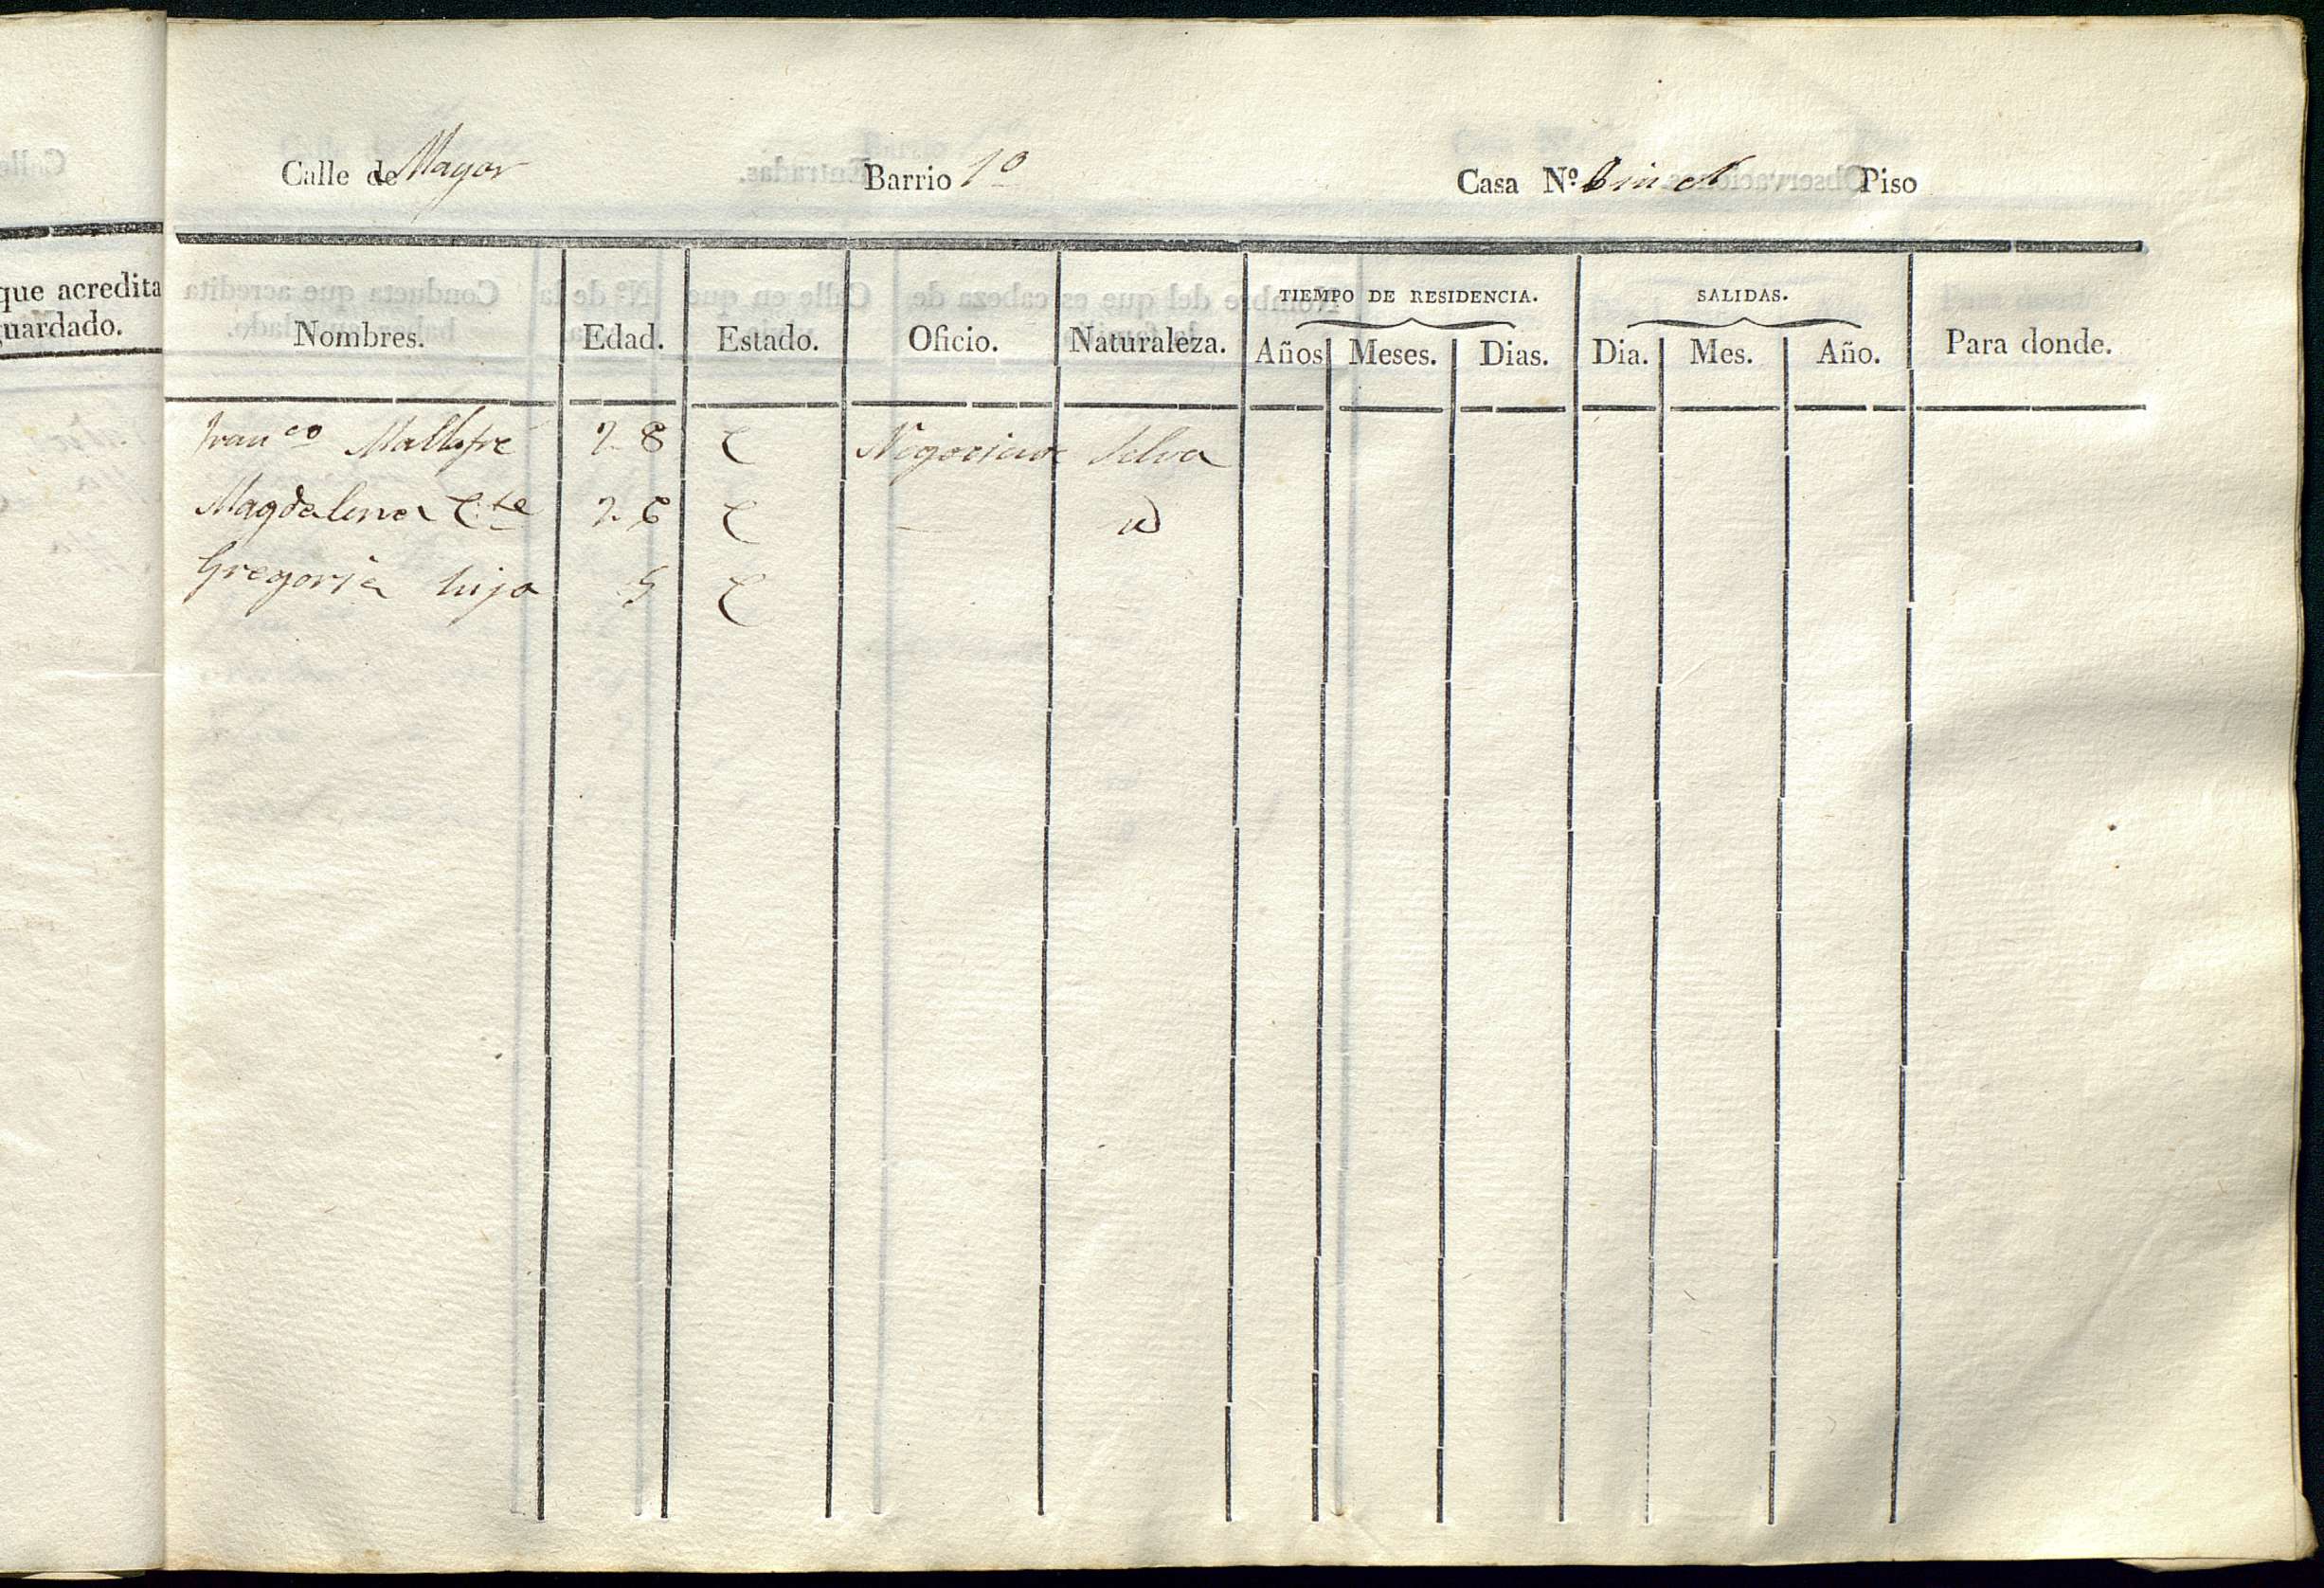 que acredita
guardado.
Calle de Mayor Barrio 1º Casa Nº sin nº Piso
Nombres. Edad. Estado. Oficio. Naturaleza. TIEMPO DE RESIDENCIA. Años Meses. Dias. SALIDAS. Dia. Mes. Año. Para donde.
Franco Mallafre 28 C Negociante Selva
Magdalena Cte 26 C — id
Gregoria hija 5 C